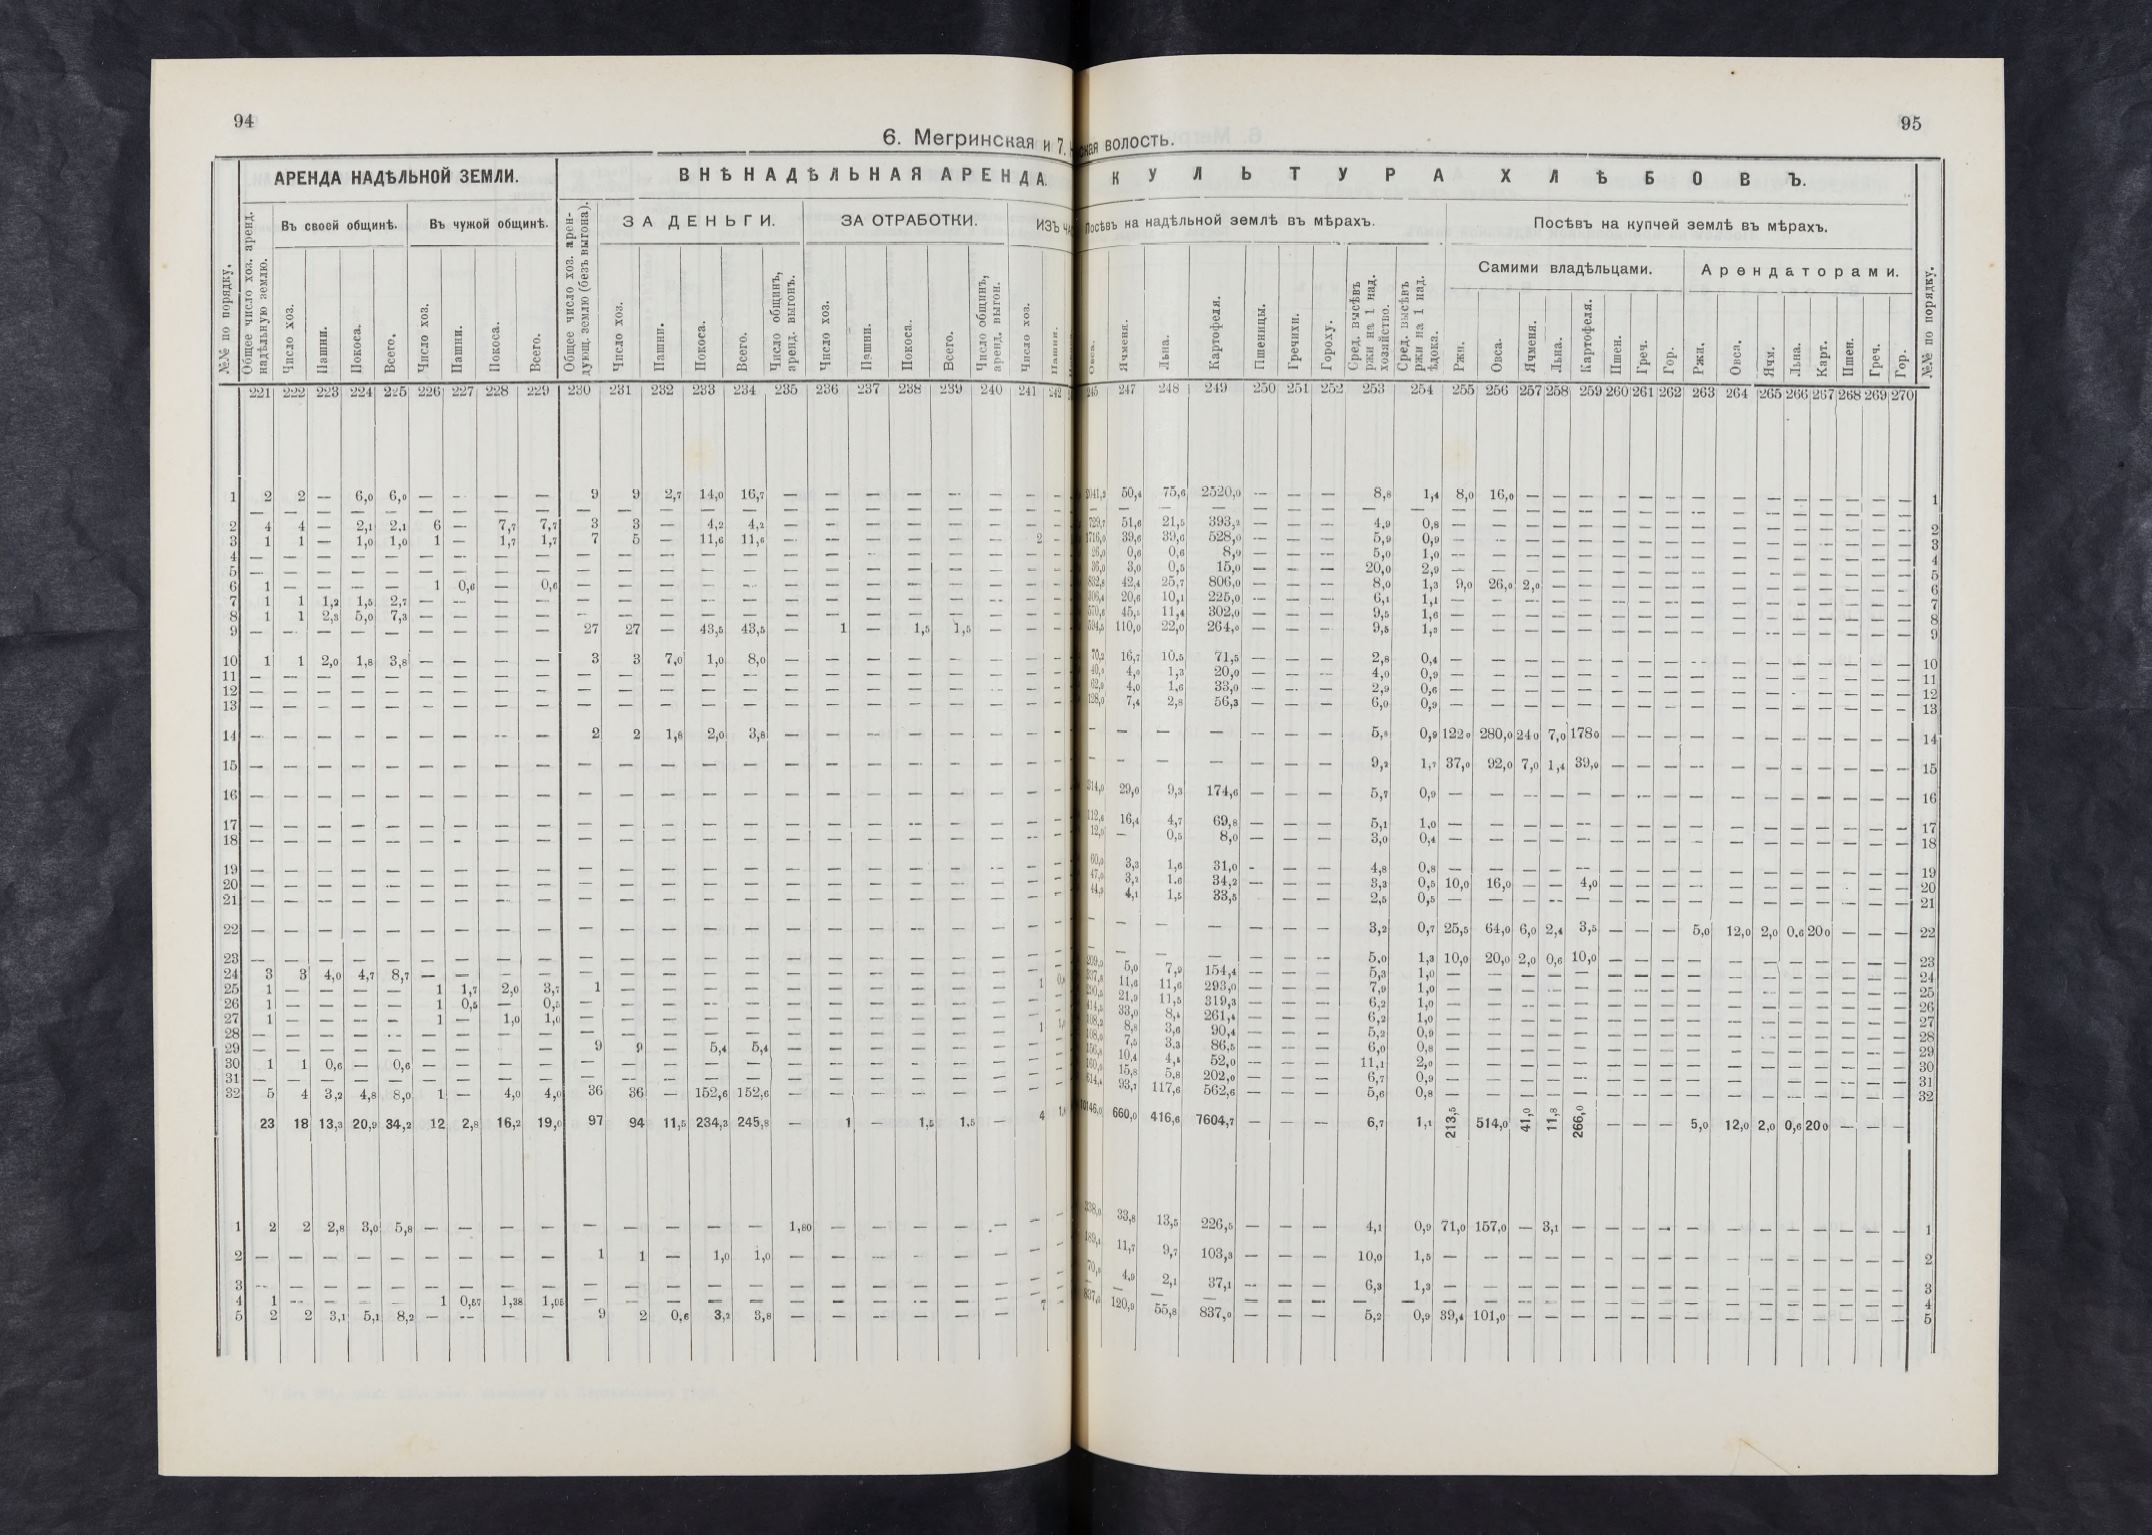 94
6. Мегринская и 7.
АРЕНДА НАДѢЛЬНОЙ ЗЕМЛИ.
ВНѢНАДѢЛЬНАЯ АРЕНДА.
Въ своей общинѣ.
Въ чужой общинѣ.
ЗА ДЕНЬГИ.
ЗА ОТРАБОТКИ.
ИЗЪ
№№ по порядку.
Общее число хоз. аренд. надѣльную землю.
Число хоз.
Пашни.
Покоса.
Всего.
Число хоз.
Пашни.
Покоса.
Всего.
Общее число хоз. арендующ. землю (безъ выгона).
Число хоз.
Пашни.
Покоса.
Всего.
Число общинъ, аренд. выгонъ.
Число хоз.
Пашни.
Покоса.
Всего.
Число общинъ, аренд. выгон.
Число хоз.
Пашни.
221 222 223 224 225 226 227 228 229 230 231 232 233 234 235 236 237 238 239 240 241 242
1 2 2 — 6,0 6,0 — — — — 9 9 2,7 14,0 16,7 — — — — — — —
2 4 4 — 2,1 2,1 6 — 7,7 7,7 3 3 — 4,2 4,2 — — — — — — —
3 1 1 — 1,0 1,0 1 — 1,7 1,7 7 5 — 11,6 11,6 — — — — — — 2
4 — — — — — — — — — — — — — — — — — — — — —
5 — — — — — — — — — — — — — — — — — — — — —
6 1 — — — — 1 0,6 — 0,6 — — — — — — — — — — — —
7 1 1 1,2 1,5 2,7 — — — — — — — — — — — — — — — —
8 1 1 2,3 5,0 7,3 — — — — — — — — — — — — — — — —
9 — — — — — — — — — 27 27 — 43,5 43,5 — 1 — 1,5 1,5 — —
10 1 1 2,0 1,8 3,8 — — — — 3 3 7,0 1,0 8,0 — — — — — — —
11 — — — — — — — — — — — — — — — — — — — — —
12 — — — — — — — — — — — — — — — — — — — — —
13 — — — — — — — — — — — — — — — — — — — — —
14 — — — — — — — — — 2 2 1,8 2,0 3,8 — — — — — — —
15 — — — — — — — — — — — — — — — — — — — — —
16 — — — — — — — — — — — — — — — — — — — — —
17 — — — — — — — — — — — — — — — — — — — — —
18 — — — — — — — — — — — — — — — — — — — — —
19 — — — — — — — — — — — — — — — — — — — — —
20 — — — — — — — — — — — — — — — — — — — — —
21 — — — — — — — — — — — — — — — — — — — — —
22 — — — — — — — — — — — — — — — — — — — — —
23 — — — — — — — — — — — — — — — — — — — — —
24 3 3 4,0 4,7 8,7 — — — — — — — — — — — — — — — —
25 1 — — — — 1 1,7 2,0 3,7 1 — — — — — — — — — — 1
26 1 — — — — 1 0,5 — 0,5 — — — — — — — — — — — —
27 1 — — — — 1 — 1,0 1,0 — — — — — — — — — — — —
28 — — — — — — — — — — — — — — — — — — — — 1
29 — — — — — — — — — 9 9 — 5,4 5,4 — — — — — — —
30 1 1 0,6 — 0,6 — — — — — — — — — — — — — — — —
31 — — — — — — — — — — — — — — — — — — — — —
32 5 4 3,2 4,8 8,0 1 — 4,0 4,0 36 36 — 152,6 152,6 — — — — — — —
23 18 13,3 20,9 34,2 12 2,8 16,2 19,0 97 94 11,5 234,3 245,8 — 1 — 1,5 1,5 — 4
1 2 2 2,8 3,0 5,8 — — — — — — — — — 1,80 — — — — — —
2 — — — — — — — — — 1 1 — 1,0 1,0 — — — — — — —
3 — — — — — — — — — — — — — — — — — — — — —
4 1 — — — — 1 0,57 1,38 1,95 — — — — — — — — — — — —
5 2 2 3,1 5,1 8,2 — — — — 9 2 0,6 3,2 3,8 — — — — — — 7
95
ская волость.
КУЛЬТУРА ХЛѢБОВЪ.
Посѣвъ на надѣльной землѣ въ мѣрахъ.
Посѣвъ на купчей землѣ въ мѣрахъ.
Самими владѣльцами.
Арендаторами.
Овса.
Ячменя.
Льна.
Картофеля.
Пшеницы.
Гречихи.
Гороху.
Сред. высѣвъ ржи на 1 над. хозяйство.
Сред. высѣвъ ржи на 1 над. ѣдока.
Ржи.
Овса.
Ячменя.
Льна.
Картофеля.
Пшен.
Греч.
Гор.
Ржи.
Овса.
Ячм.
Льна.
Карт.
Пшен.
Греч.
Гор.
№№ по порядку.
247 248 249 250 251 252 253 254 255 256 257 258 259 260 261 262 263 264 265 266 267 268 269 270
50,4 75,6 2520,0 — — — 8,8 1,4 8,0 16,0 — — — — — — — — — — — — — — 1
51,6 21,5 393,2 — — — 4,9 0,8 — — — — — — — — — — — — — — — — 2
1716,0 39,6 39,6 528,0 — — — 5,9 0,9 — — — — — — — — — — — — — — — — 3
0,6 0,6 8,0 — — — 5,0 1,0 — — — — — — — — — — — — — — — — 4
3,0 0,5 15,0 — — — 20,0 2,9 — — — — — — — — — — — — — — — — 5
42,4 25,7 806,0 — — — 8,0 1,3 9,0 26,0 2,0 — — — — — — — — — — — — — 6
20,6 10,1 225,0 — — — 6,1 1,1 — — — — — — — — — — — — — — — — 7
45,5 11,4 302,0 — — — 9,5 1,6 — — — — — — — — — — — — — — — — 8
110,0 22,0 264,0 — — — 9,5 1,3 — — — — — — — — — — — — — — — — 9
16,7 10,5 71,5 — — — 2,8 0,4 — — — — — — — — — — — — — — — — 10
4,0 1,3 20,0 — — — 4,0 0,9 — — — — — — — — — — — — — — — — 11
4,0 1,6 33,0 — — — 2,9 0,6 — — — — — — — — — — — — — — — — 12
128,0 7,4 2,8 56,3 — — — 6,0 0,9 — — — — — — — — — — — — — — — — 13
— — — — — — — 5,8 0,9 122 0 280,0 24 0 7,0 178 0 — — — — — — — — — — — 14
— — — — — — — 9,2 1,7 37,0 92,0 7,0 1,4 39,0 — — — — — — — — — — — 15
314,0 29,0 9,3 174,6 — — — 5,7 0,9 — — — — — — — — — — — — — — — — 16
112,6 16,4 4,7 69,8 — — — 5,1 1,0 — — — — — — — — — — — — — — — — 17
12,0 — 0,5 8,0 — — — 3,0 0,4 — — — — — — — — — — — — — — — — 18
60,0 3,3 1,6 31,0 — — — 4,8 0,8 — — — — — — — — — — — — — — — — 19
47,0 3,2 1,6 34,2 — — — 3,3 0,5 10,0 16,0 — — 4,0 — — — — — — — — — — — 20
4,1 1,5 33,5 — — — 2,5 0,5 — — — — — — — — — — — — — — — — 21
— — — — — — — 3,2 0,7 25,5 64,0 6,0 2,4 3,5 — — — 5,0 12,0 2,0 0,6 20 0 — — — 22
— — — — — — — 5,0 1,3 10,0 20,0 2,0 0,6 10,0 — — — — — — — — — — — 23
5,0 7,9 154,4 — — — 5,3 1,0 — — — — — — — — — — — — — — — — 24
11,6 11,6 293,0 — — — 7,9 1,0 — — — — — — — — — — — — — — — — 25
21,9 11,5 319,3 — — — 6,2 1,0 — — — — — — — — — — — — — — — — 26
33,0 8,4 261,4 — — — 6,2 1,0 — — — — — — — — — — — — — — — — 27
8,8 3,6 90,4 — — — 5,2 0,9 — — — — — — — — — — — — — — — — 28
7,5 3,3 86,5 — — — 6,0 0,8 — — — — — — — — — — — — — — — — 29
10,4 52,0 — — — 11,1 2,0 — — — — — — — — — — — — — — — — 30
15,8 5,8 202,0 — — — 6,7 0,9 — — — — — — — — — — — — — — — — 31
93,1 117,6 562,6 — — — 5,6 0,8 — — — — — — — — — — — — — — — — 32
10146,0 660,0 416,6 7604,7 — — — 6,7 1,1 213,5 514,0 41,0 11,8 266,0 — — — 5,0 12,0 2,0 0,6 20 0 — — —
33,8 13,5 226,5 — — — 4,1 0,9 71,0 157,0 — 3,1 — — — — — — — — — — — — 1
11,7 9,7 103,3 — — — 10,0 1,5 — — — — — — — — — — — — — — — — 2
4,9 2,1 37,1 — — — 6,3 1,3 — — — — — — — — — — — — — — — — 3
— — — — — — — — — — — — — — — — — — — — — — — — — 4
120,9 55,8 837,0 — — — 5,2 0,9 39,4 101,0 — — — — — — — — — — — — — — 5